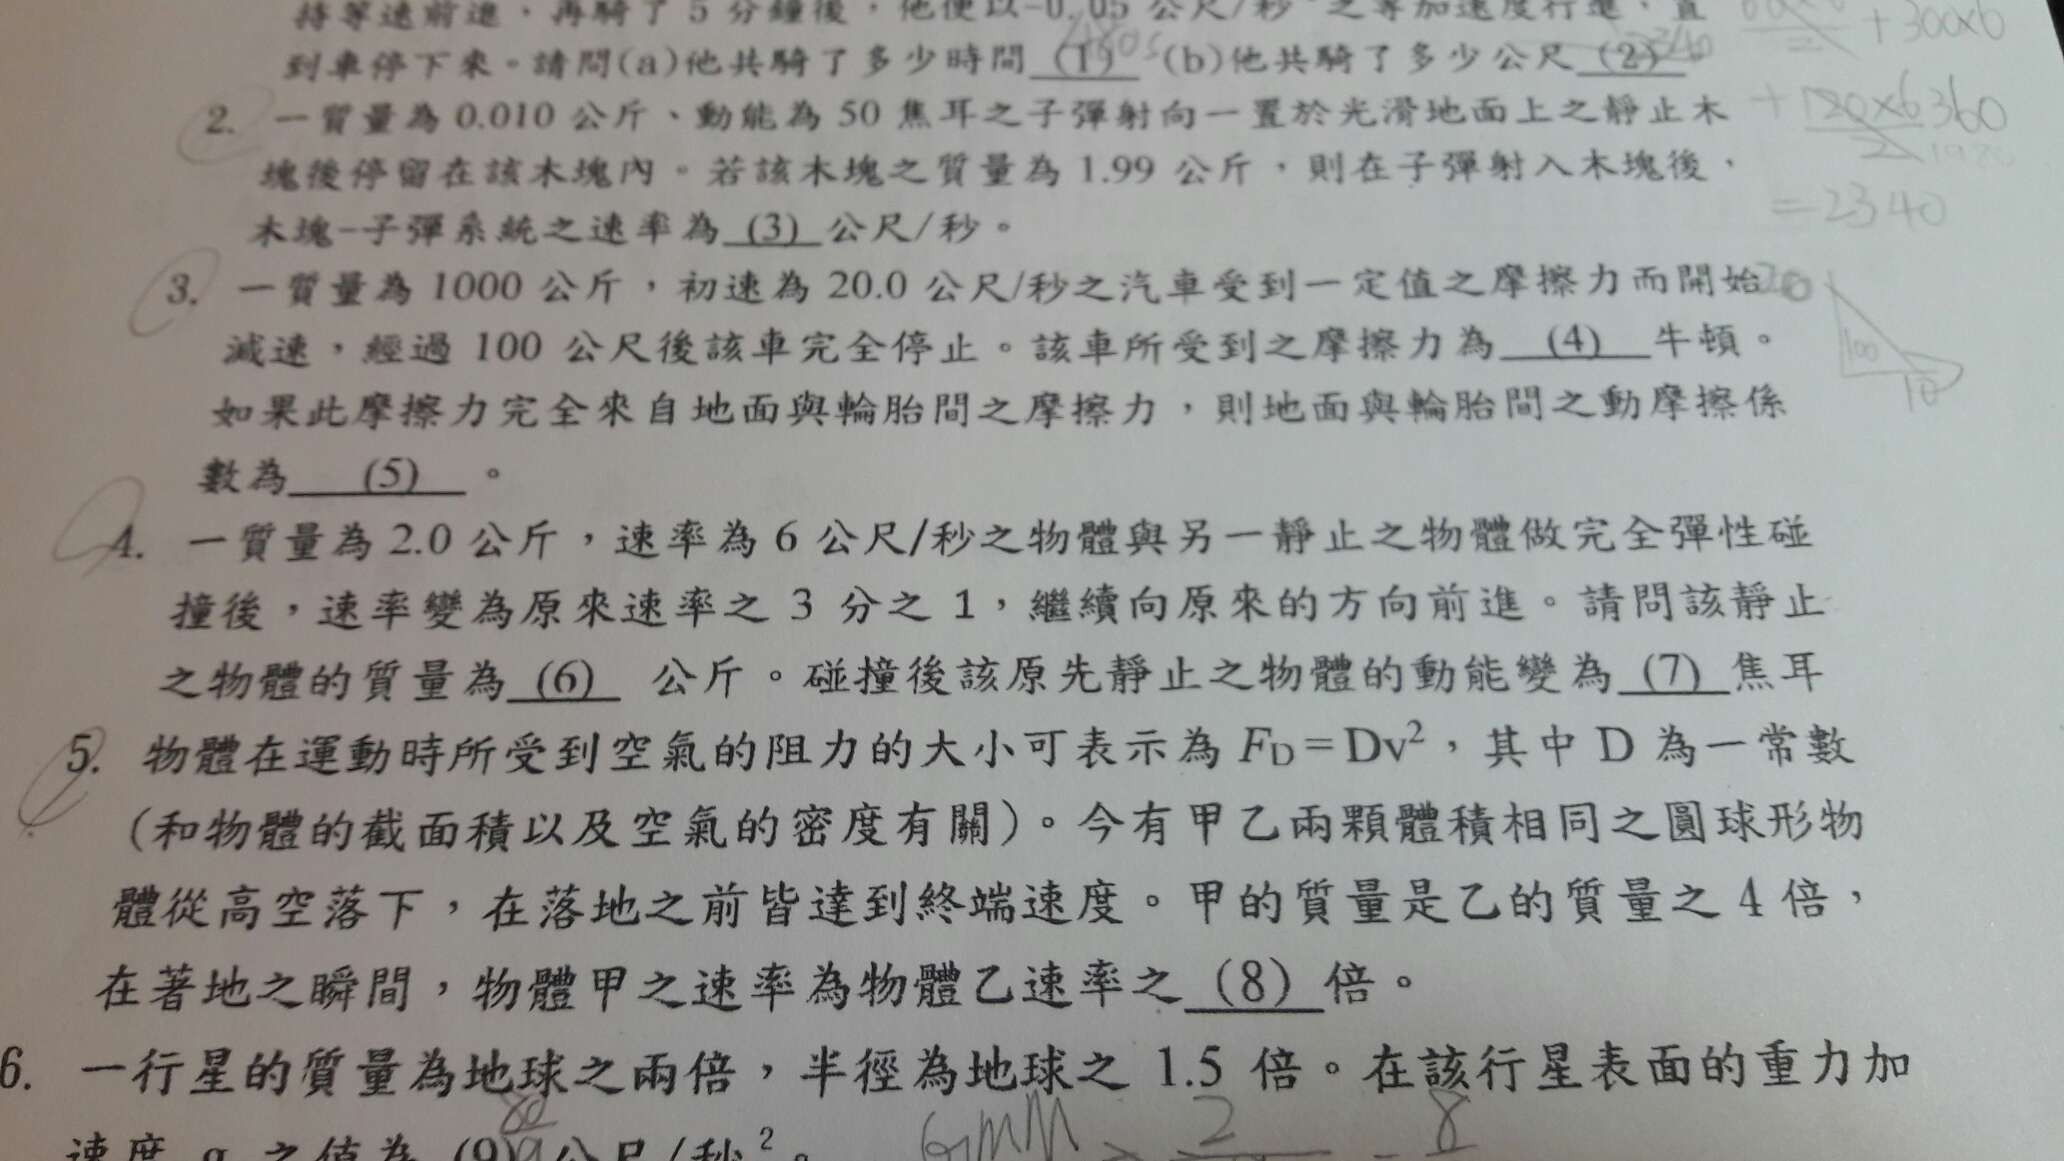 持等速前進，再騎了5分鐘後，他便以-0.05公尺/秒²之等加速度行進，直
到車停下來。請問(a)他共騎了多少時間 (1) (b)他共騎了多少公尺 (2)
2. 一質量為0.010公斤、動能為50焦耳之子彈射向一置於光滑地面上之靜止木
塊後停留在該木塊內。若該木塊之質量為1.99公斤，則在子彈射入木塊後，
木塊-子彈系統之速率為 (3) 公尺/秒。
3. 一質量為1000公斤，初速為20.0公尺/秒之汽車受到一定值之摩擦力而開始
減速，經過100公尺後該車完全停止。該車所受到之摩擦力為 (4) 牛頓。
如果此摩擦力完全來自地面與輪胎間之摩擦力，則地面與輪胎間之動摩擦係
數為 (5) 。
4. 一質量為2.0公斤，速率為6公尺/秒之物體與另一靜止之物體做完全彈性碰
撞後，速率變為原來速率之3分之1，繼續向原來的方向前進。請問該靜止
之物體的質量為 (6) 公斤。碰撞後該原先靜止之物體的動能變為 (7) 焦耳
5. 物體在運動時所受到空氣的阻力的大小可表示為 F_D = Dv²，其中D為一常數
(和物體的截面積以及空氣的密度有關)。今有甲乙兩顆體積相同之圓球形物
體從高空落下，在落地之前皆達到終端速度。甲的質量是乙的質量之4倍，
在著地之瞬間，物體甲之速率為物體乙速率之 (8) 倍。
6. 一行星的質量為地球之兩倍，半徑為地球之1.5倍。在該行星表面的重力加
速度 g 之值為 (9) 公尺/秒²。
+ 300x6
+ 120x6 360
2
= 2340
100
10
GMM
2
8